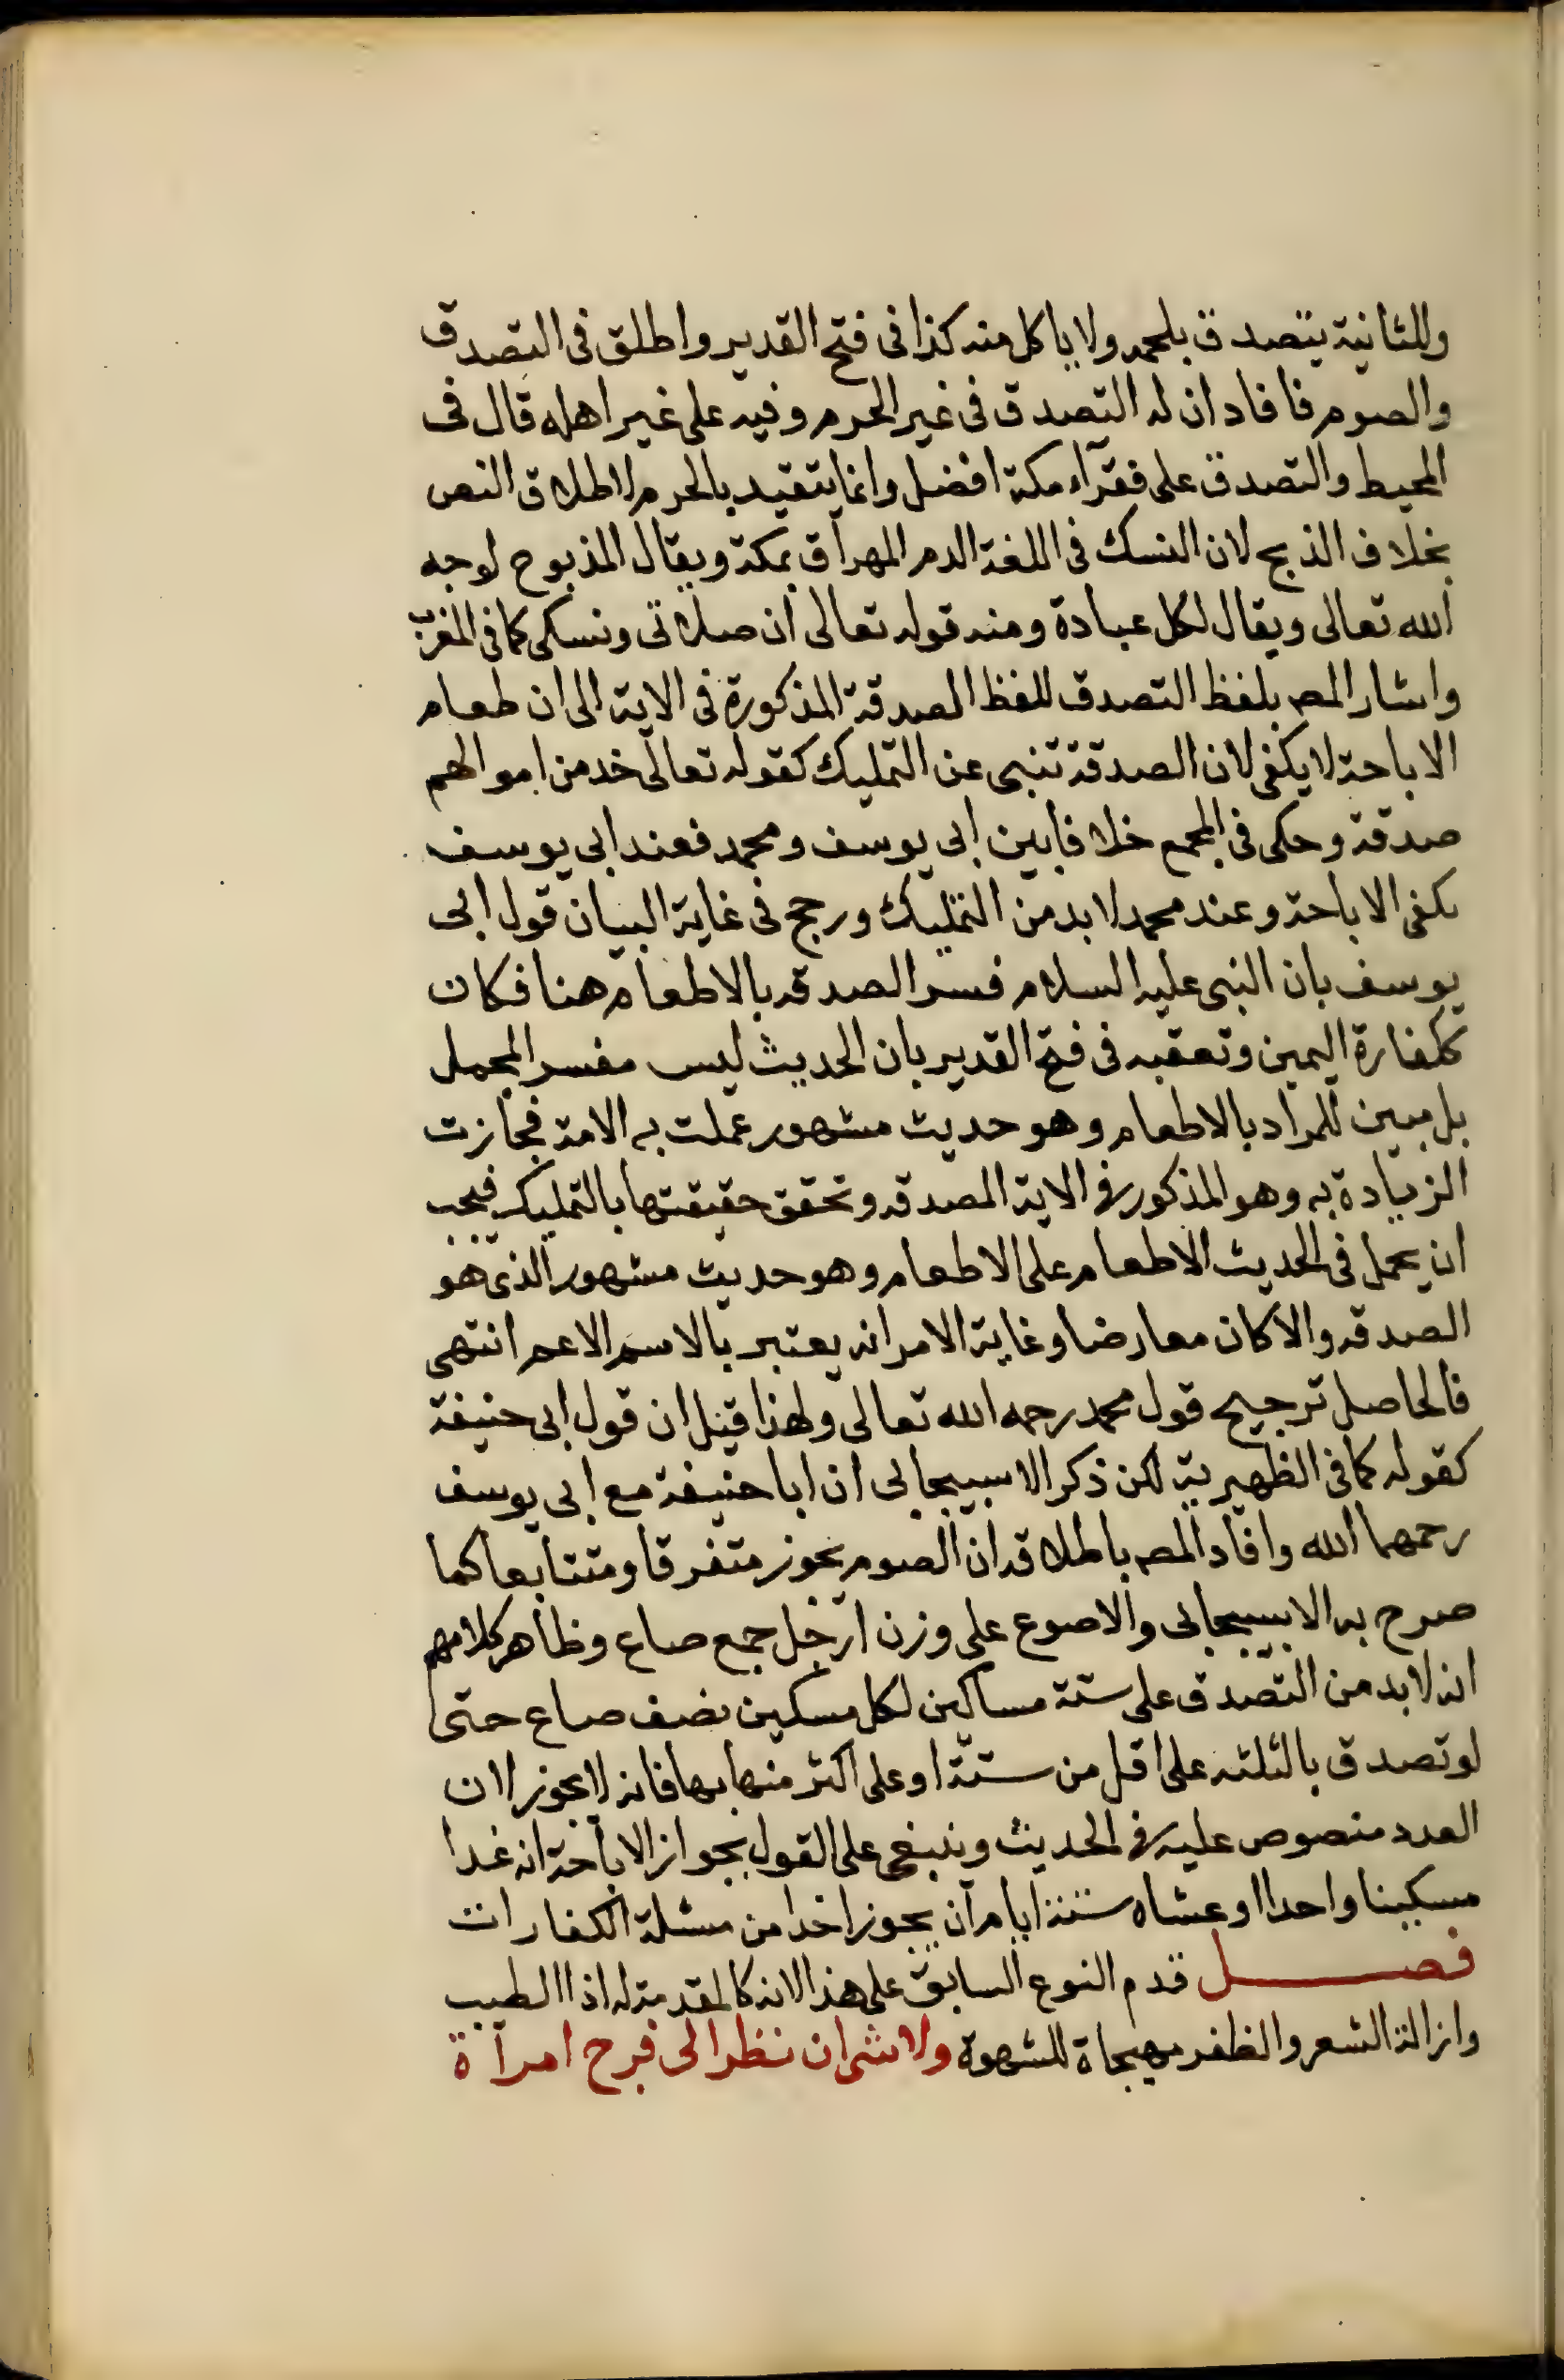 وللثانية يتصدق بلحمه ولا ياكل منه كذا فى فتح القدير واطلق فى التصدق
والصوم فافاد ان له التصدق فى غير الحرم وفيه على غير اهله قال فى
المحيط والتصدق على فقرآء مكة افضل وانما يتقيد بالحرم لاطلاق النص
بخلاف الذبح لان النسك فى اللغة الدم المهراق بمكة ويقال المذبوح لوجه
الله تعالى ويقال لكل عبادة ومنه قوله تعالى ان صلاتى ونسكى كما فى المغرب
واشار المص بلفظ التصدق للفظ الصدقة المذكورة فى الاية الى ان طعام
الاباحة لا يكفى لان الصدقة تنبى عن التمليك كقوله تعالى خد من اموالهم
صدقة وحكى فى المجمع خلافا بين ابى يوسف ومحمد فعند ابى يوسف
يكفى الاباحة وعند محمد لا بد من التمليك ورجح فى غاية البيان قول ابى
يوسف بان النبى عليه السلام فسر الصدقه بالاطعام هنا فكان
ككفارة اليمين وتعقبه فى فتح القدير بان الحديث ليس مفسر المجمل
بل مبين للمراد بالاطعام وهو حديث مشهور عملت به الامة فجازت
الزيادة به وهو المذكور فى الاية الصدقه وتحقق حقيقتها بالتمليك فيجب
ان يحمل فى الحديث الاطعام على الاطعام وهو حديث مشهور الذى هو
الصدقه والا كان معارضا وغاية الامر انه يعتبر بالاسم الاعم انتهى
فالحاصل ترجيح قول محمد رحمه الله تعالى ولهذا قيل ان قول ابى حنيفة
كقوله كما فى الظهيرية لكن ذكر الاسبيجابى ان ابا حنيفة مع ابى يوسف
رحمهما الله وافاد المص باطلاقه ان الصوم يجوز متفرقا ومتتابعا كما
صرح به الاسبيجابى والاصوع على وزن ارجل جمع صاع وظاهر كلامهم
انه لا بد من التصدق على ستة مساكين لكل مسكين نصف صاع حتى
لو تصدق بالثلثه على اقل من ستة او على اكثر منها بها فانه لا يجوز لان
العدد منصوص عليه فى الحديث وينبغى على القول بجواز الاباحة انه غدا
مسكينا واحدا او عشاه ستة ايام ان يجوز اخدا من مسئلة الكفارات
فصل قدم النوع السابق على هذا لانه كالمقدمة له اذ الطيب
وازالة الشعر والظفر مهيجاة للشهوة ولا شى ان نظر الى فرج امرآة